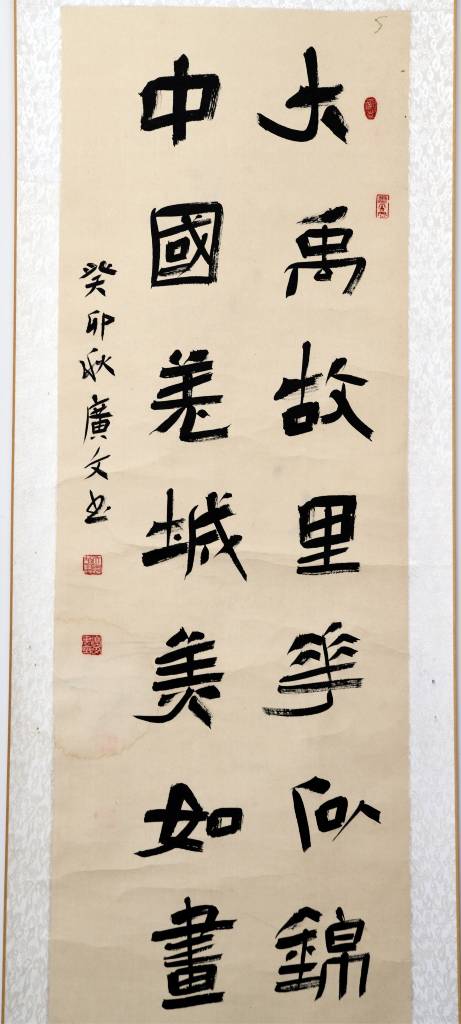 大禹故里花似錦
中國羌城美如畫
癸卯秋廣文书